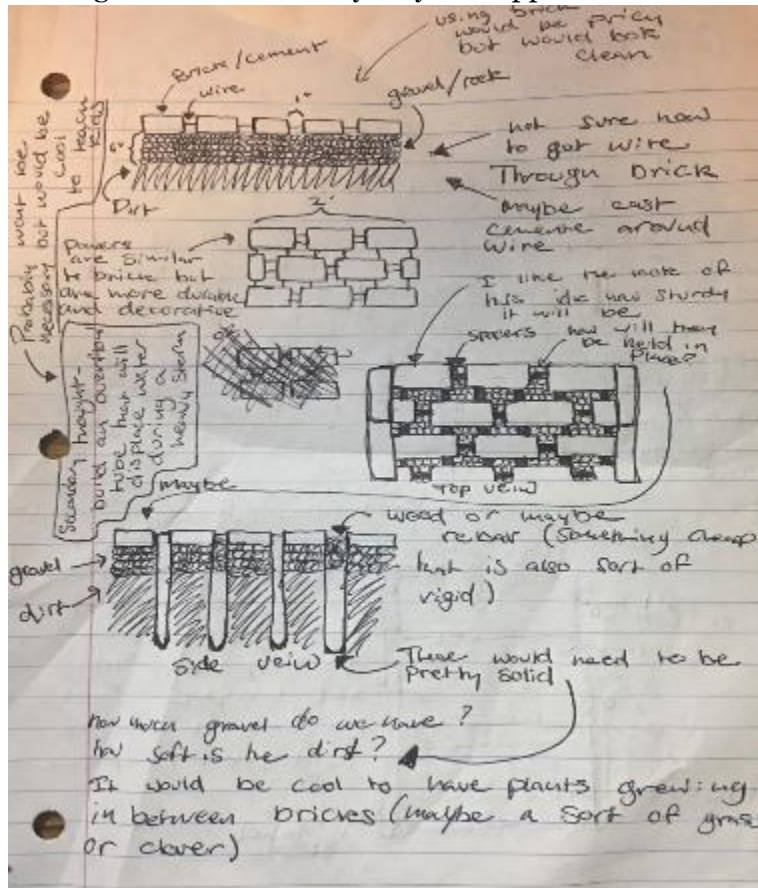 using brick
would be pricy
but would look
clean
Bricks/cement
wire
1"
gravel/rock
6"
Dirt
not sure how
to get wire
Through brick
maybe cast
cement around
wire
2'
Pavers
are similar
to brick but
are more durable
and decorative
Probably wont be
necessary but would be
cool to teach
kids
I like the
of
how sturdy
it will be
spacers
how will they
be held in
place?
Top veiw
Secondary thought-
build an overflow
tube that will
displace water
during a
heavy storm
maybe
wood or maybe
rebar (something cheap
that is also sort of
rigid)
gravel
dirt
side veiw
These would need to be
pretty solid
how much gravel do we have?
how soft is the dirt?
It would be cool to have plants growing
in between bricks (maybe a sort of grass
or clover)